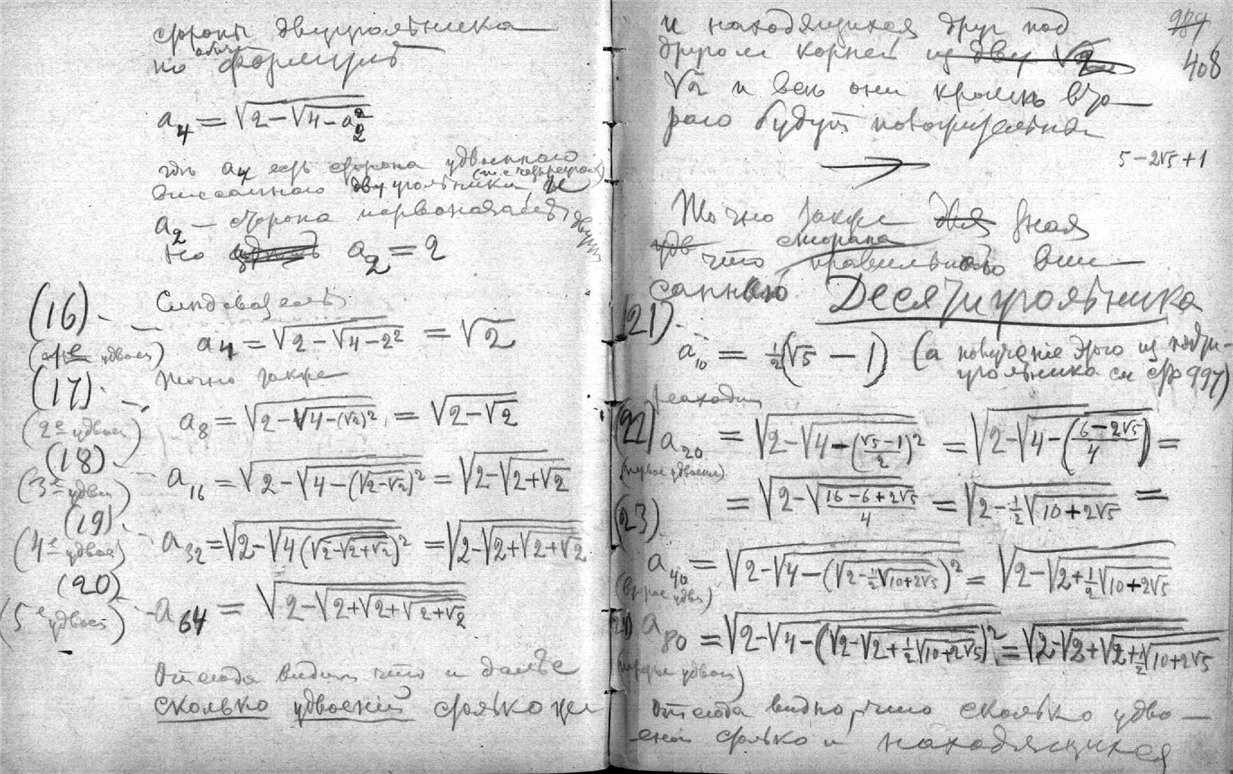 стороны двуугольника
по общей формуле
a₄ = √(2−√(4−a₂²))
где a₄ есть сторона удвоенного
вписаннаго двуугольника, (т.е. четыреуг.) и
a₂ — сторона первоначальн.
Но a₂ = 2
Следовательно
(16). a₄ = √(2−√(4−2²)) = √2
(1-е удвоен)
(17). Точно также
a₈ = √(2−√(4−(√2)²)) = √(2−√2)
(2-е удвоен)
(18). a₁₆ = √(2−√(4−(√(2−√2))²)) = √(2−√(2+√2))
(3-е удвоен)
(19) a₃₂ = √(2−√(4(√(2−√(2+√2)))²)) = √(2−√(2+√(2+√2)))
(4-е удвоен)
(20) a₆₄ = √(2−√(2+√(2+√(2+√2))))
(5-е удвоен)
Отсюда видим что и далее
сколько удвоений столько же
и находящихся друг под
другом корней из двух √2
408
√2 и все они кроме вто-
рого будут положительны
5−2√5+1
Точно также для зная
что сторона правильнаго впи-
саннаго Десятиугольника
(21). a₁₀ = ½(√5 − 1) (а получение этого из пяти-
угольника см стр 997)
находим
(22) a₂₀ = √(2−√(4−((√5−1)/2)²)) = √(2−√(4−((6−2√5)/4))) =
(первое удвоение)
= √(2−√((16−6+2√5)/4)) = √(2−½√(10+2√5)) =
(23)
a₄₀ = √(2−√(4−(√(2−½√(10+2√5)))²)) = √(2−√(2+½√(10+2√5)))
(второе удвоен)
(24) a₈₀ = √(2−√(4−(√(2−√(2+½√(10+2√5))))²)) = √(2−√(2+√(2+½√(10+2√5))))
(третье удвоен)
Отсюда видно, что сколько удво-
ений столько и находящихся